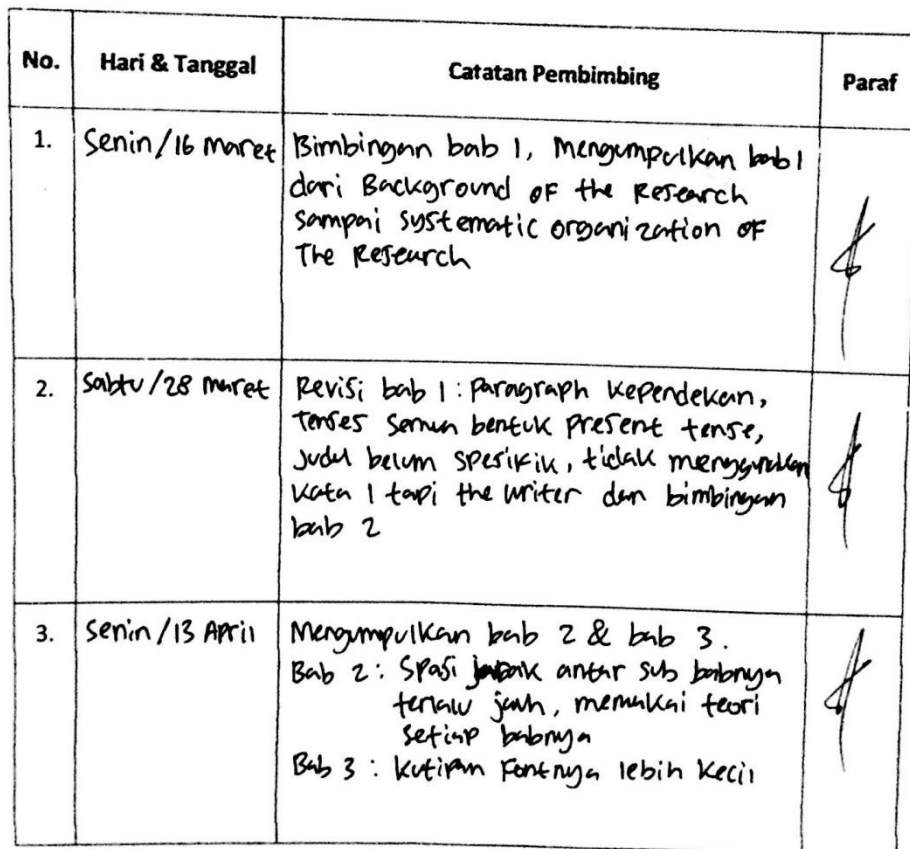 No. Hari & Tanggal Catatan Pembimbing Paraf
1. Senin/16 maret Bimbingan bab 1, Mengumpulkan bab 1
dari Background of the Research
sampai systematic organization of
The Research
2. Sabtu/28 maret Revisi bab 1: Paragraph kependekan,
Tenses semua bentuk present tense,
Judul belum spesifik, tidak menggunakan
kata I tapi the writer dan bimbingan
bab 2
3. Senin/13 April Mengumpulkan bab 2 & bab 3.
Bab 2: Spasi antar sub babnya
terlalu jauh, memakai teori
setiap babnya
Bab 3: kutipan Fontnya lebih kecil